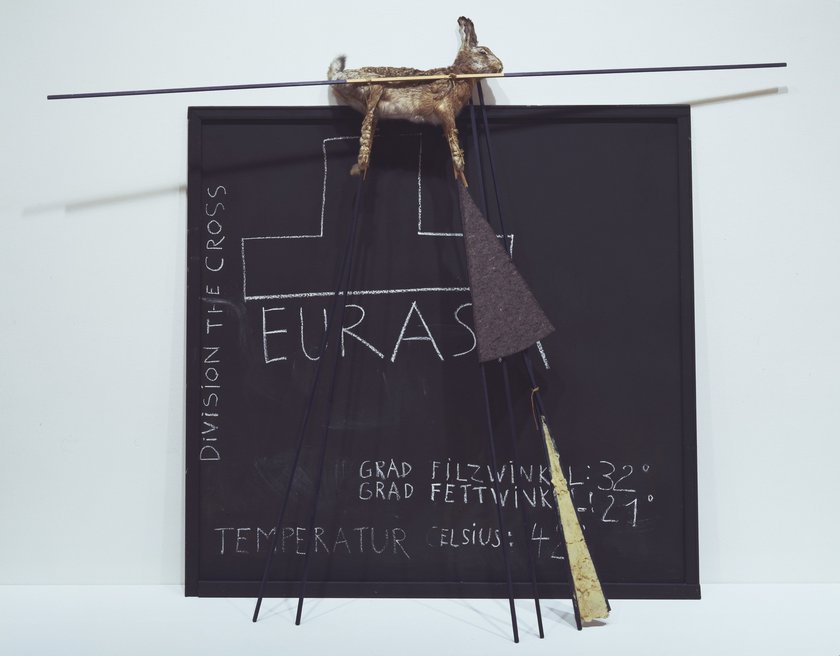 DIVISION THE CROSS
EURAS
GRAD FILZWINKEL: 32°
GRAD FETTWINKEL: 21°
TEMPERATUR CELSIUS: 42°